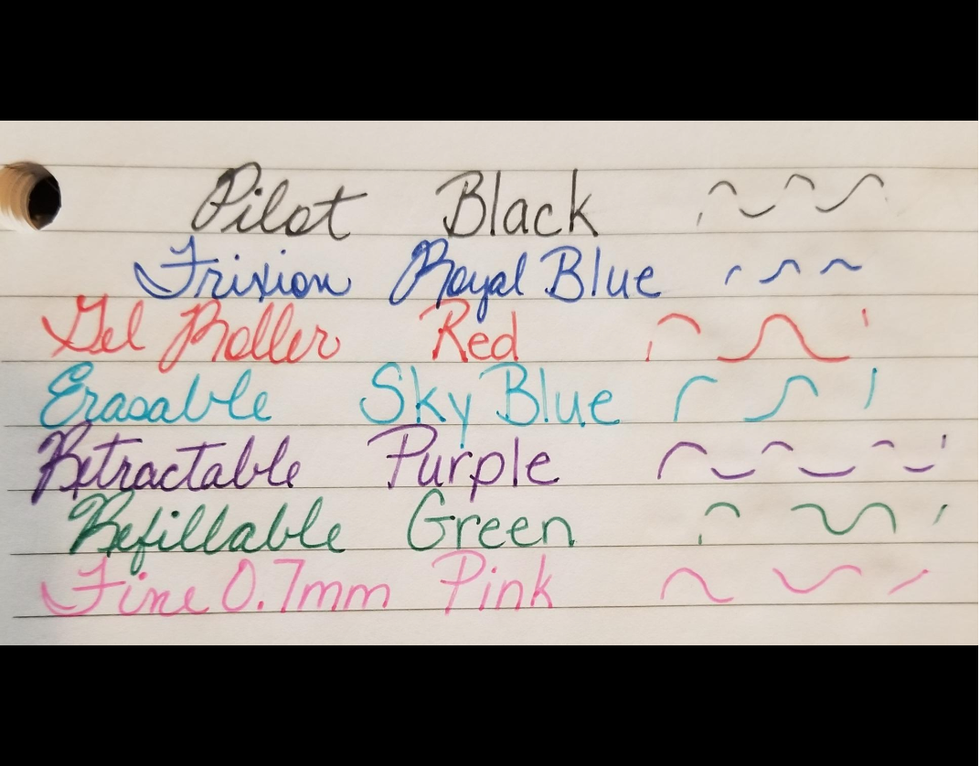 Pilot Black
Frixion Royal Blue
Gel Roller Red
Erasable Sky Blue
Retractable Purple
Refillable Green
Fine 0.7mm Pink